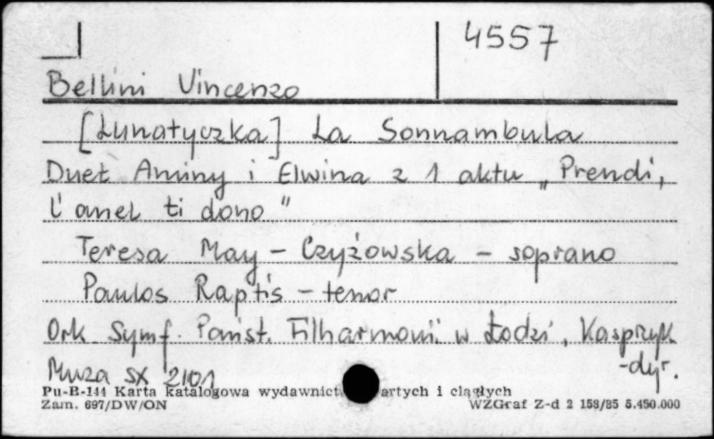 4557
Bellini Vincenzo
[Lunatyczka] La Sonnambula
Duet Aminy i Elwina z 1 aktu „Prendi,
l'anel ti dono"
Teresa May - Czyżowska - soprano
Paulos Raptis - tenor
Ork Symf. Państ. Filharmonii w Łodzi, Kasprzyk
-dyr.
Muza SX 2101
Pu-B-144 Karta katalogowa wydawnict artych i ciągłych
Zam. 697/DW/ON WZGraf Z-d 2 158/85 5.450.000